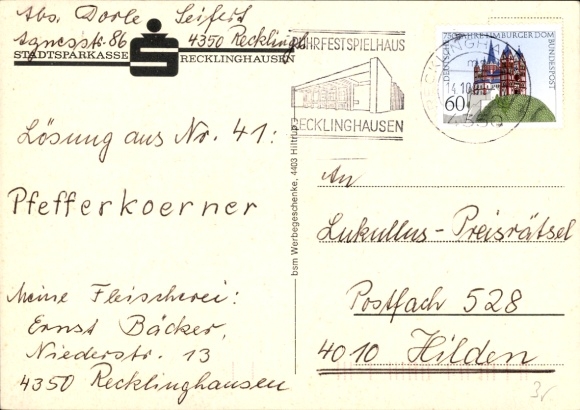 Abs. Dorle Seifert
Agnesstr. 86 4350 Recklingh.
STADTSPARKASSE RECKLINGHAUSEN
Lösung aus Nr. 41:
Pfefferkoerner
Meine Fleischerei:
Ernst Bäcker,
Niederstr. 13
4350 Recklinghausen
bsm Werbegeschenke, 4403 Hiltrup
RUHRFESTSPIELHAUS
RECKLINGHAUSEN
750 JAHRE LIMBURGER DOM
DEUTSCHE BUNDESPOST
60
RECKLINGHAUSEN
14.10.85
4350
An
Lukullus-Preisrätsel
Postfach 528
4010 Hilden